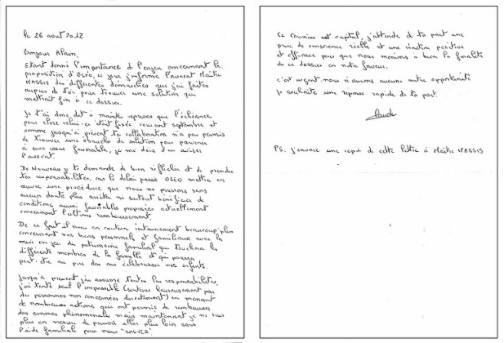 le 26 aout 2012
Bonjour Alain,
Etant donné l'importance de l'enjeu concernant la
proposition d'OSEO, il que j'informe l'avocat Maître
des différentes démarches que j'ai faites
auprès de toi pour trouver une solution qui
mettrait fin à ce dossier.
Je t'ai donc, dit à maintes reprises que l'échéance
pour clore celui-ci était fixée courant septembre et
comme jusqu'à présent ta collaboration n'a pas permis
de trouver une ébauche de solution pour parvenir
à une issue favorable, je me dois d'en aviser
l'avocat.
De nouveau je te demande de bien réfléchir et de prendre
tes responsabilités, car le délai passé OSEO mettra en
œuvre une procédure que nous ne pourrons sans
aucun doute plus arrêter ni surtout bénéficier de
conditions aussi favorables proposées actuellement
concernant l'ultime remboursement.
De ce fait il aura en retour beaucoup plus
concernant nos biens personnels et familiaux avec la
mise en jeu du patrimoine familial qui touchera les
différents membres de la famille et qui passera
peut-être au pire des cas nos enfants.
Jusqu'à présent, j'ai assumé toutes les responsabilités,
j'ai tenté tout l'impossible (soutenu heureusement par
des personnes non concernées directement) en menant
de nombreuses actions qui ont permis de rembourser
des sommes phénoménales mais maintenant je ne suis
plus en mesure de pouvoir aller plus loin sans
l'aide familiale pour nous "sauver"
Ce courrier est capital, j'attends de ta part une
prise de conscience réelle et une réaction positive
et efficace pour que nous menions à bien la finalité
de ce dossier en notre faveur.
C'est urgent nous n'aurons aucune autre opportunité
je souhaite une réponse rapide de ta part.
PS: j'envoie une copie de cette lettre à Maître